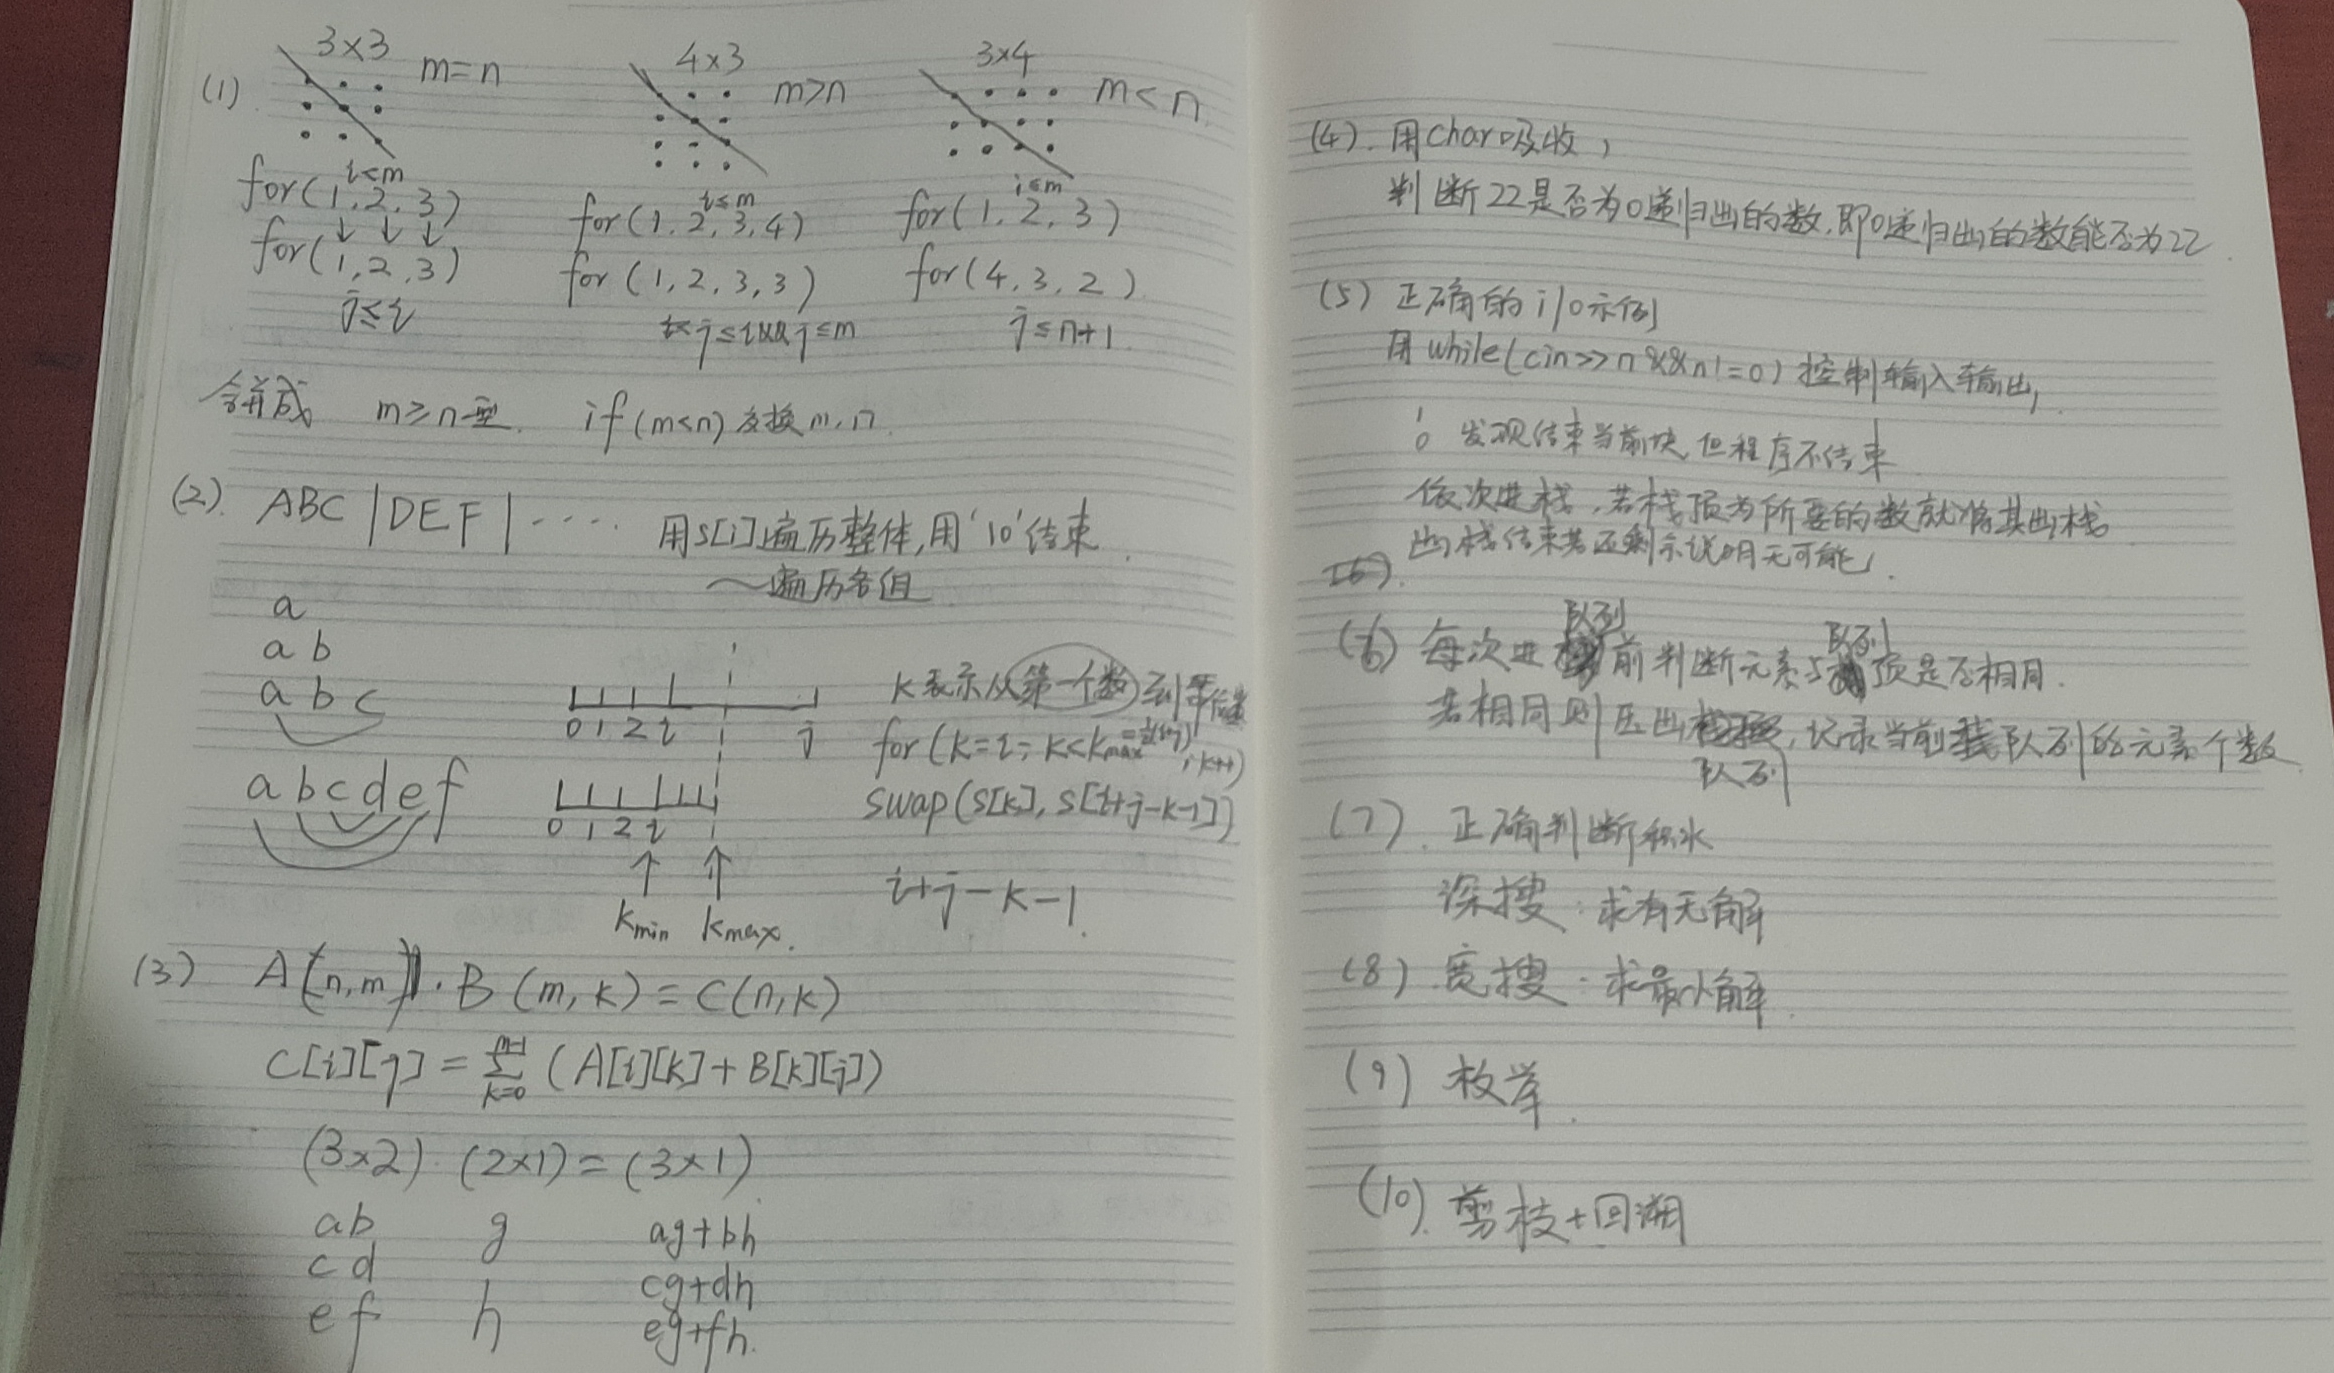 (1)
3×3 m=n
4×3 m>n
3×4 m<n
i≤m
for(1,2,3)
↓ ↓ ↓
for(1,2,3)
j≤i
i≤m
for(1,2,3,4)
for(1,2,3,3)
j≤i&&j≤m
i≤m
for(1,2,3)
for(4,3,2)
j≤n+1
合并成 m≥n型. if(m<n)交换m,n
(2). ABC|DEF|····· 用s[i]遍历整体,用'\0'结束.
～遍历各组
a
ab
abc
abcdef
0 1 2 i j
0 1 2 i
kmin kmax.
K表示从第一个数到
for(k=i; k<kmax ;k++)
swap(s[k], s[i+j-k-1])
i+j-k-1.
(3) A(n,m)·B(m,k)=C(n,k)
C[i][j]=∑ k=0 m-1 (A[i][k]+B[k][j])
(3×2)·(2×1)=(3×1).
ab g ag+bh
cd cg+dh
ef h eg+fh.
(4). 用char吸收,
判断22是否为0递归出的数,即0递归出的数能否为22
(5) 正确的i/o示例
用while(cin>>n&&n!=0)控制输入输出,
0 发现结束当前块,但程序不结束
依次进栈,若栈顶为所要的数就将其出栈
出栈结束若还剩示说明无可能.
(6) 每次进队列前判断元素与队列顶是否相同.
若相同则压出队列,记录当前队列的元素个数
(7) 正确判断积水
深搜:求有无解
(8) 宽搜:求最小解.
(9) 枚举.
(10). 剪枝+回溯